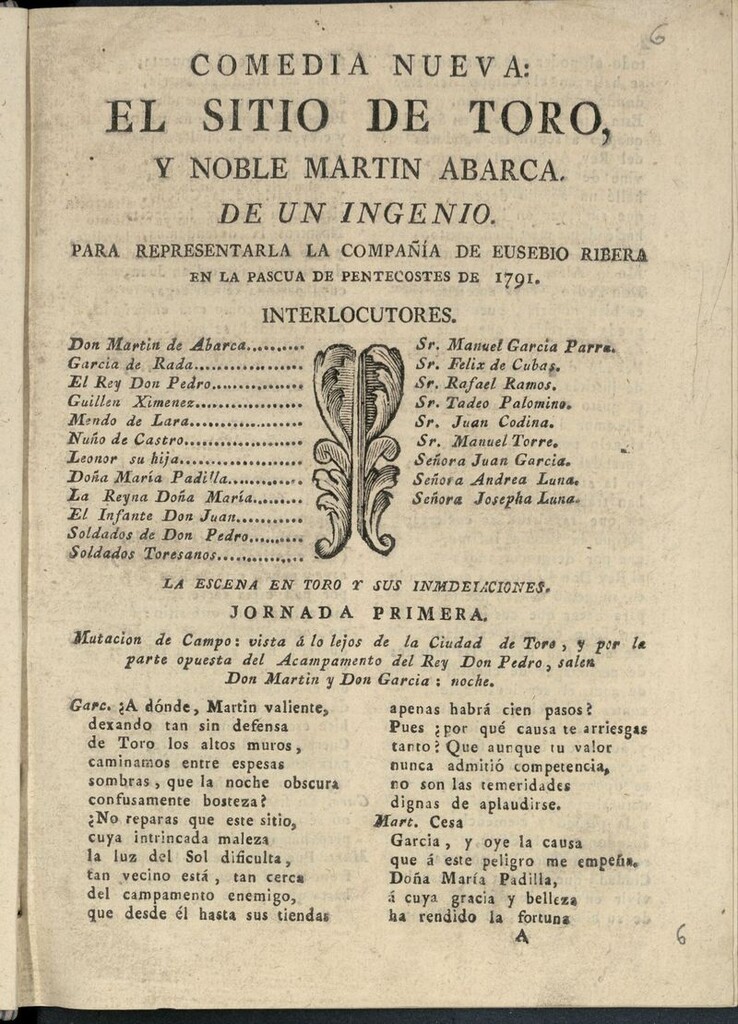 6
COMEDIA NUEVA:
EL SITIO DE TORO,
Y NOBLE MARTIN ABARCA.
DE UN INGENIO.
PARA REPRESENTARLA LA COMPAÑÍA DE EUSEBIO RIBERA
EN LA PASCUA DE PENTECOSTES DE 1791.
INTERLOCUTORES.
Don Martin de Abarca..........
Garcia de Rada.................
El Rey Don Pedro..............
Guillen Ximenez................
Mendo de Lara.................
Nuño de Castro.................
Leonor su hija..................
Doña María Padilla...........
La Reyna Doña María........
El Infante Don Juan..........
Soldados de Don Pedro........
Soldados Toresanos.............
Sr. Manuel Garcia Parra.
Sr. Felix de Cubas.
Sr. Rafael Ramos.
Sr. Tadeo Palomino.
Sr. Juan Codina.
Sr. Manuel Torre.
Señora Juan Garcia.
Señora Andrea Luna.
Señora Josepha Luna.
LA ESCENA EN TORO Y SUS INMDEIACIONES.
JORNADA PRIMERA.
Mutacion de Campo: vista á lo lejos de la Ciudad de Toro, y por la
parte opuesta del Acampamento del Rey Don Pedro, salen
Don Martin y Don Garcia: noche.
Garc. ¿A dónde, Martin valiente,
dexando tan sin defensa
de Toro los altos muros,
caminamos entre espesas
sombras, que la noche obscura
confusamente bosteza?
¿No reparas que este sitio,
cuya intrincada maleza
la luz del Sol dificulta,
tan vecino está, tan cerca
del campamento enemigo,
que desde él hasta sus tiendas
apenas habrá cien pasos?
Pues ¿por qué causa te arriesgas
tanto? Que aunque tu valor
nunca admitió competencia,
no son las temeridades
dignas de aplaudirse.
Mart. Cesa
Garcia, y oye la causa
que á este peligro me empeña.
Doña María Padilla,
á cuya gracia y belleza
ha rendido la fortuna
A
6